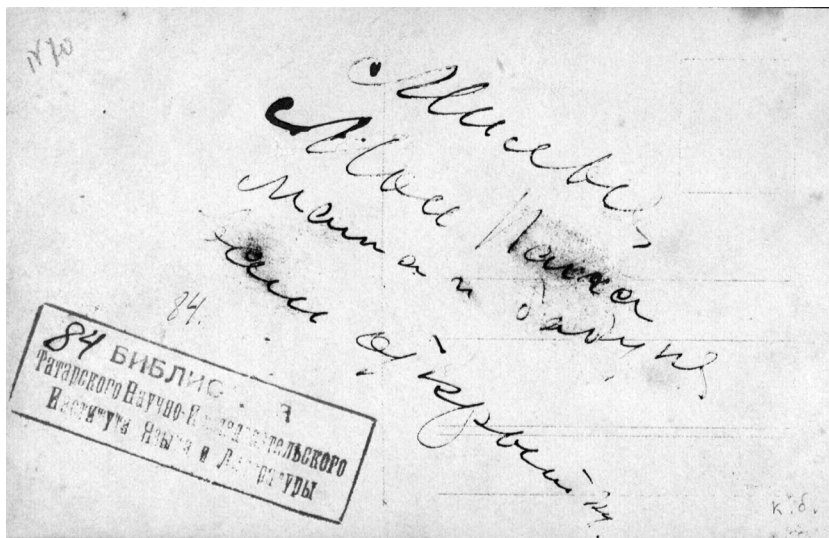 N 70
Мои Папа
мама и бабуня
открытку
84.
84 БИБЛИО 7
Татарского Научно-Исследовательского
Института Языка и Литературы
к.б.